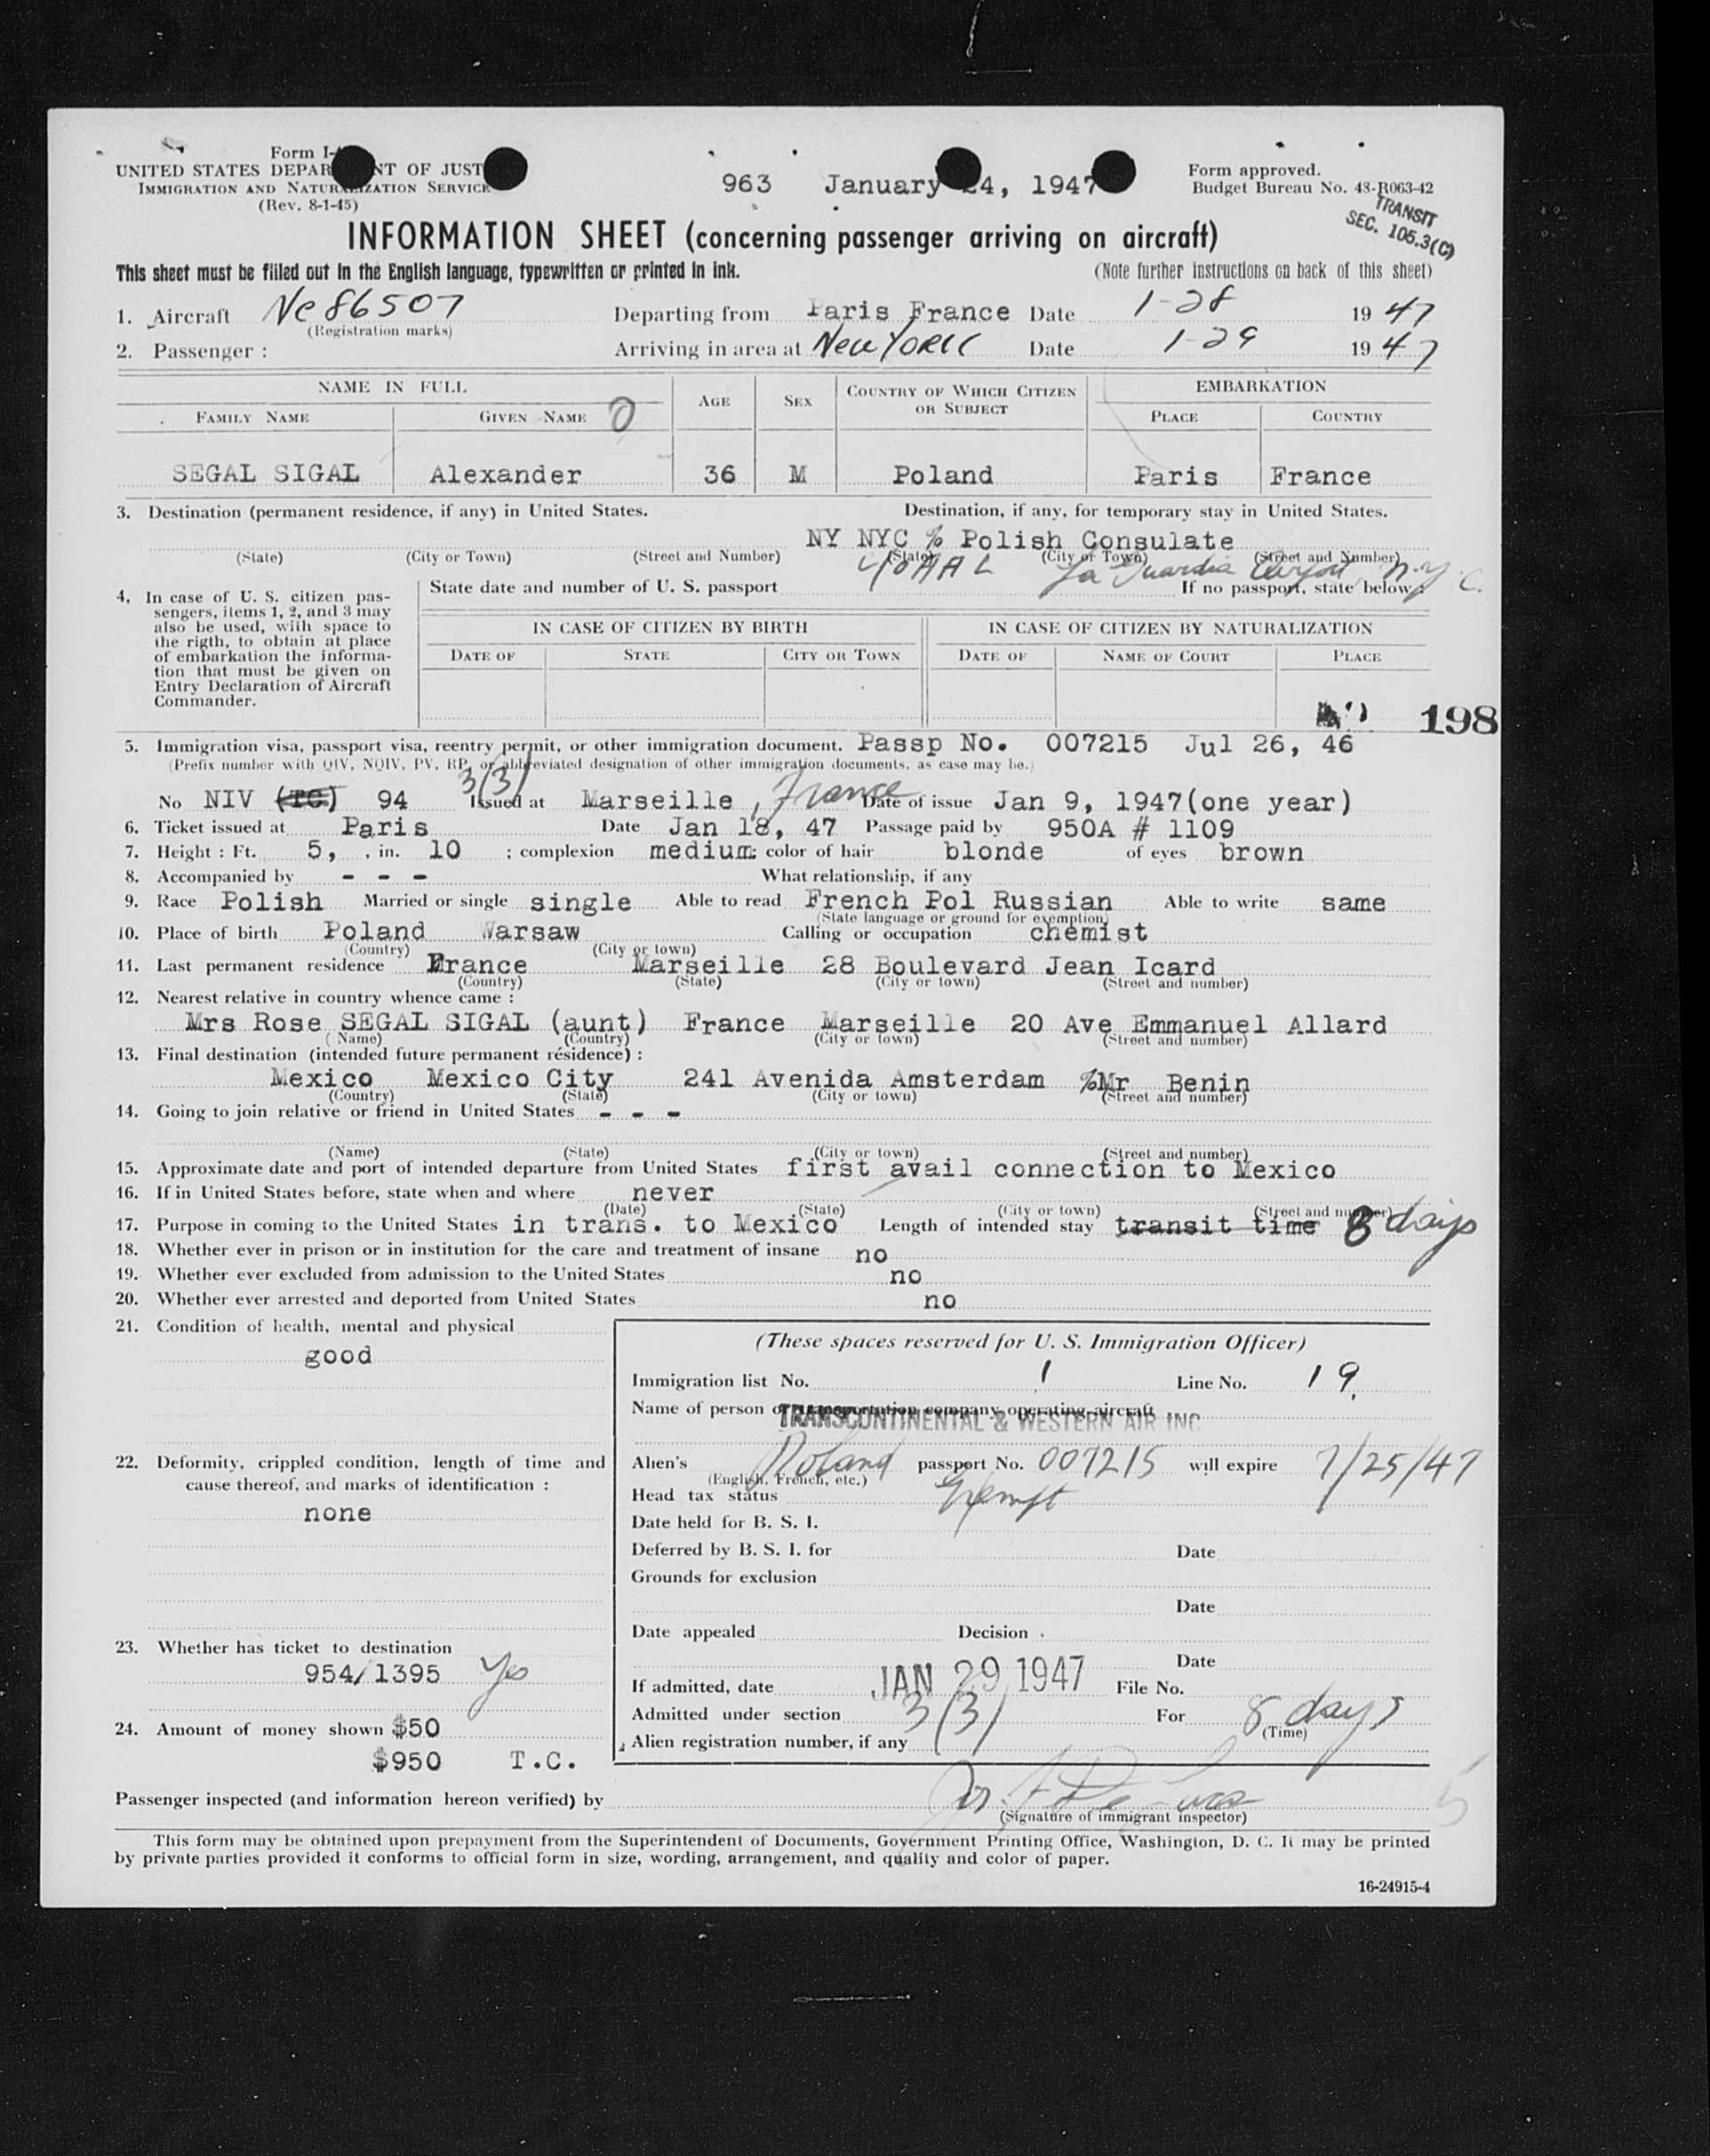 Form I-
UNITED STATES DEPAR NT OF JUST
IMMIGRATION AND NATURALIZATION SERVICE
(Rev. 8-1-45)
963 January 24, 1947
Form approved.
Budget Bureau No. 43-R063-42
TRANSIT
SEC. 105.3(C)
INFORMATION SHEET (concerning passenger arriving on aircraft)
This sheet must be filled out in the English language, typewritten or printed in ink. (Note further instructions on back of this sheet)
1. Aircraft Nc 86507 Departing from Paris France Date 1-28 19 47
(Registration marks)
2. Passenger : Arriving in area at New York Date 1-29 19 47
NAME IN FULL AGE SEX COUNTRY OF WHICH CITIZEN OR SUBJECT EMBARKATION
FAMILY NAME GIVEN NAME PLACE COUNTRY
SEGAL SIGAL Alexander 36 M Poland Paris France
3. Destination (permanent residence, if any) in United States. Destination, if any, for temporary stay in United States.
NY NYC % Polish Consulate
(State) (City or Town) (Street and Number) (State) (City or Town) (Street and Number)
AAL La Guardia Airport N.Y.C.
4. In case of U. S. citizen pas-
sengers, items 1, 2, and 3 may
also be used, with space to
the rigth, to obtain at place
of embarkation the informa-
tion that must be given on
Entry Declaration of Aircraft
Commander.
State date and number of U. S. passport If no passport, state below :
IN CASE OF CITIZEN BY BIRTH IN CASE OF CITIZEN BY NATURALIZATION
DATE OF STATE CITY OR TOWN DATE OF NAME OF COURT PLACE
198
5. Immigration visa, passport visa, reentry permit, or other immigration document. Passp No. 007215 Jul 26, 46
(Prefix number with QIV, NQIV, PV, RP, or abbreviated designation of other immigration documents, as case may be.)
3(3)
No NIV (TC) 94 Issued at Marseille, France Date of issue Jan 9, 1947(one year)
6. Ticket issued at Paris Date Jan 18, 47 Passage paid by 950A # 1109
7. Height : Ft. 5, , in. 10 ; complexion medium; color of hair blonde of eyes brown
8. Accompanied by - - - What relationship, if any
9. Race Polish Married or single single Able to read French Pol Russian Able to write same
(State language or ground for exemption)
10. Place of birth Poland Warsaw Calling or occupation chemist
(Country) (City or town)
11. Last permanent residence France Marseille 28 Boulevard Jean Icard
(Country) (State) (City or town) (Street and number)
12. Nearest relative in country whence came :
Mrs Rose SEGAL SIGAL (aunt) France Marseille 20 Ave Emmanuel Allard
(Name) (Country) (City or town) (Street and number)
13. Final destination (intended future permanent résidence) :
Mexico Mexico City 241 Avenida Amsterdam %Mr Benin
(Country) (State) (City or town) (Street and number)
14. Going to join relative or friend in United States - - -
(Name) (State) (City or town) (Street and number)
15. Approximate date and port of intended departure from United States first avail connection to Mexico
16. If in United States before, state when and where never
(Date) (State) (City or town) (Street and number)
17. Purpose in coming to the United States in trans. to Mexico Length of intended stay transit time 8 days
18. Whether ever in prison or in institution for the care and treatment of insane no
19. Whether ever excluded from admission to the United States no
20. Whether ever arrested and deported from United States no
21. Condition of health, mental and physical
good
22. Deformity, crippled condition, length of time and
cause thereof, and marks of identification :
none
23. Whether has ticket to destination
954/1395 Yes
24. Amount of money shown $50
$950 T.C.
(These spaces reserved for U. S. Immigration Officer)
Immigration list No. 1 Line No. 19
Name of person or transportation company operating aircraft
TRANSCONTINENTAL & WESTERN AIR INC
Alien's Poland passport No. 007215 will expire 7/25/47
(English, French, etc.)
Head tax status Exempt
Date held for B. S. I.
Deferred by B. S. I. for Date
Grounds for exclusion
Date
Date appealed Decision
Date
If admitted, date JAN 29 1947 File No.
Admitted under section 3(3) For 8 days
(Time)
Alien registration number, if any
Passenger inspected (and information hereon verified) by
(Signature of immigrant inspector)
This form may be obtained upon prepayment from the Superintendent of Documents, Government Printing Office, Washington, D. C. It may be printed
by private parties provided it conforms to official form in size, wording, arrangement, and quality and color of paper.
16-24915-4